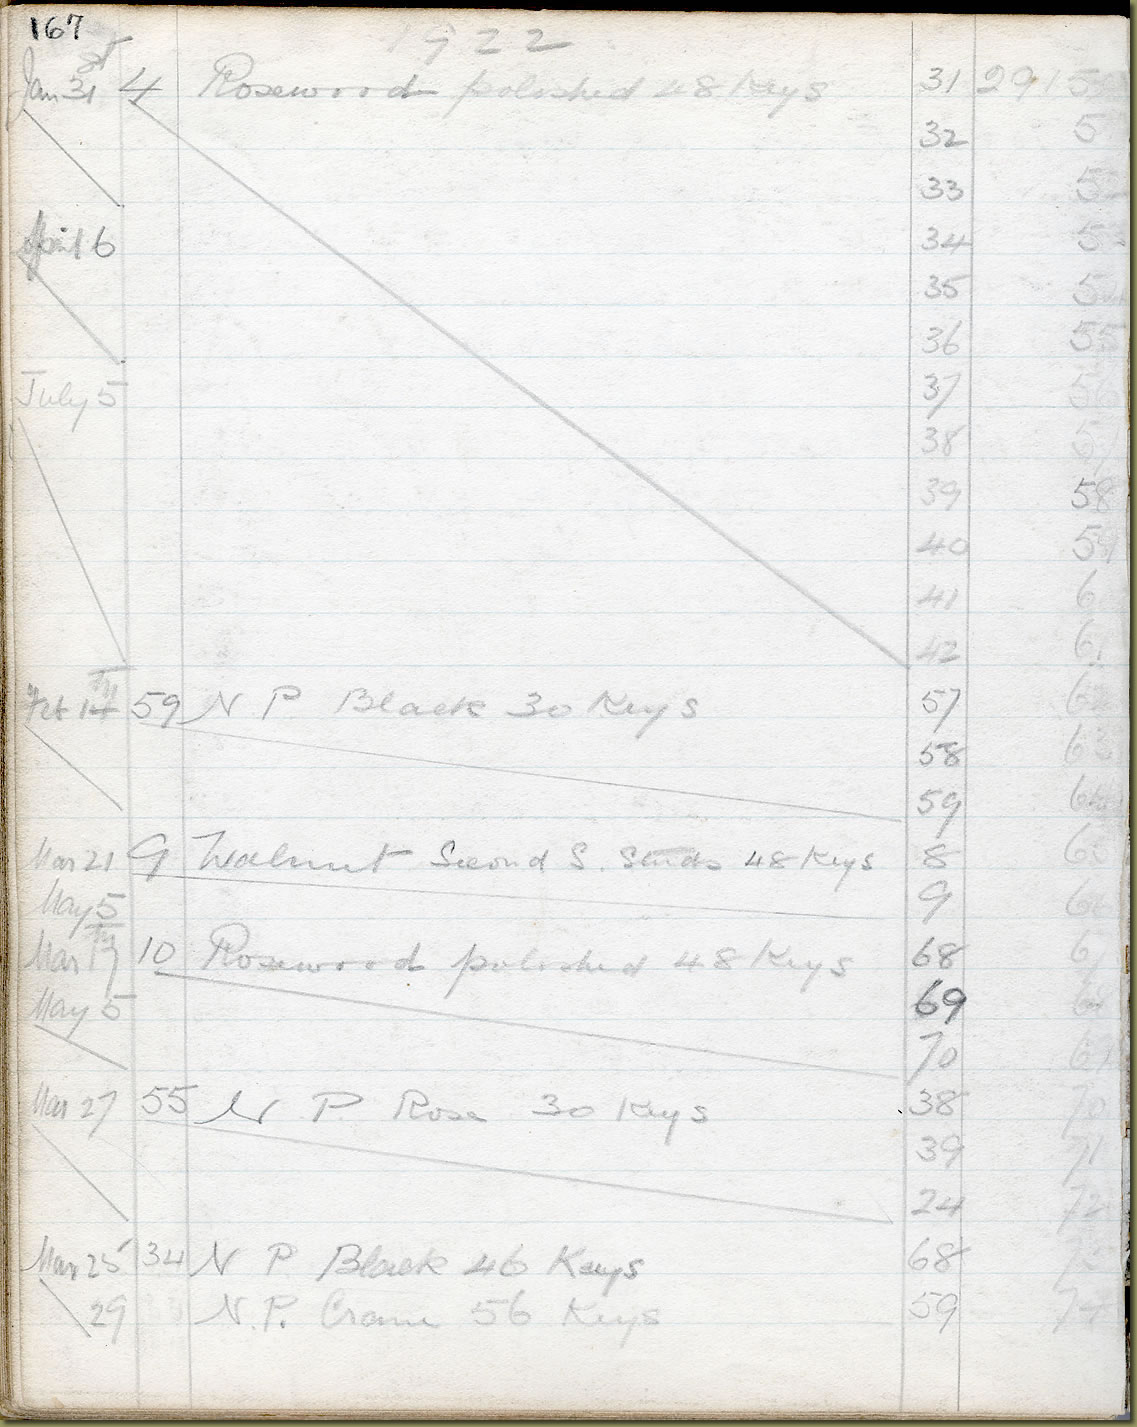 167
1922
Jan 31st 4 Rosewood polished 48 Keys 31 29150
32 5
33 52
April 6 34 53
35 54
36 55
July 5 37 56
38 57
39 58
40 59
41 6
42 61
Feb 14th 59 N P Black 30 Keys 57 62
58 63
59 64
Mar 21 9 Walnut Second S. Studs 48 Keys 8 65
May 5 9 66
Mar 17th 10 Rosewood polished 48 Keys 68 67
May 5 69 68
70 69
Mar 27 55 N P Rose 30 Keys 38 70
39 71
24 72
Mar 25 34 N P Black 46 Keys 68
29 N.P. Crane 56 Keys 59 74